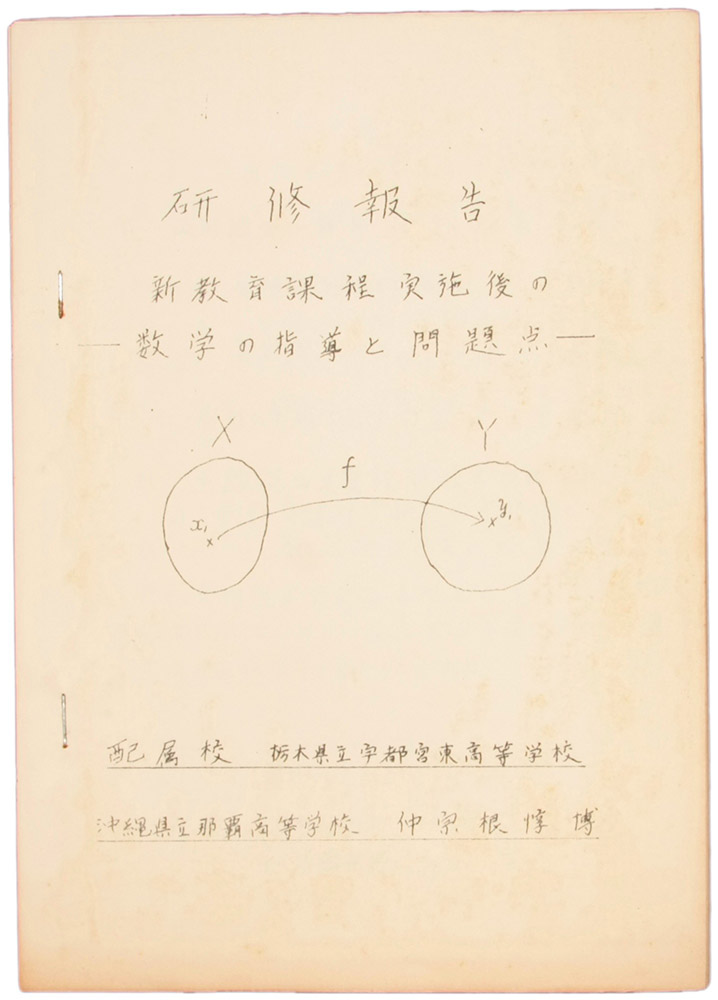 研修報告
新教育課程実施後の
―数学の指導と問題点―
X Y
f
x₁ y₁
配属校 栃木県立宇都宮東高等学校
沖縄県立那覇高等学校 仲宗根惇博